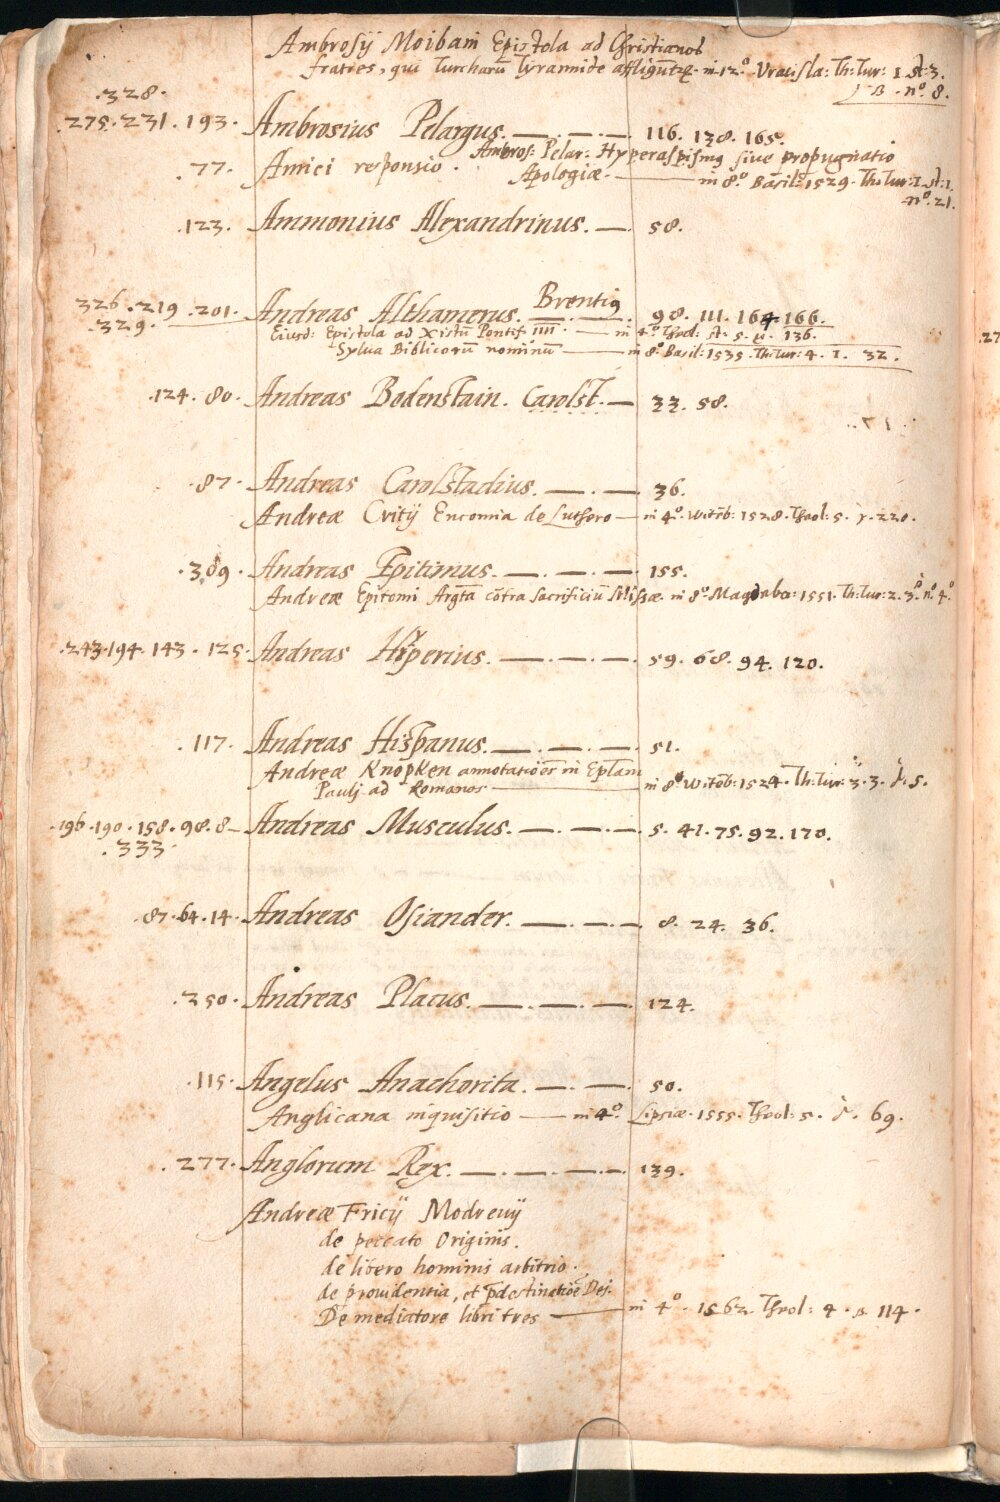 Ambrosij Moibani Epistola ad Christianos
fratres, qui Turcharū Tyrannide affligūtꝫ. in 12°. Vratisla: Th: Tur: 1. st: 3.
B. n°. 8.
.328.
.275. 231. 193. Ambrosius Pelargus. —.—.— 116. 138. 165.
Ambros: Pelar: Hyperaspismꝰ sive propugnatio
.77. Amici responsio. Apologiæ. — in 8°. Basil: 1529. Th: Tur: 1. st: 1.
n°. 21.
.123. Ammonius Alexandrinus. — 58.
326. 219. 201. Andreas Althamerus. Brentiꝰ 98. 111. 164 166.
.329. Eiusd: Epistola ad Xistū Pontif. IIII. — in 4°. Theol: st. 5. 136.
Sylua Biblicorū nominū — in 8°. Basil: 1535. Th: Tur: 4. 1. 32.
.124. 80. Andreas Bodenstain. Carolst. — 33. 58.
.87. Andreas Carolstadius. —.— 36.
Andreæ Critij Encomia de Luthero — in 4°. Witeb: 1528. Theol: 5. 220.
.309. Andreas Epitimus. —.—.— 155.
Andreæ Epitomi Argta cōtra sacrificiū Missæ. in 8°. Magdebo: 1551. Th: Tur: 2. 3. n°. 4.
.243. 194. 143. 125. Andreas Hiperius. —.—.— 59. 68. 94. 120.
.117. Andreas Hispanus. —.—.— 51.
Andreæ Knopken annotatiōes in Eplam
Pauli ad Romanos — in 8°. Witeb: 1524. Th: Tur: 3. 3. 5.
.196. 190. 158. 98. 8 Andreas Musculus. —.—.— 5. 41. 75. 92. 170.
.333.
.87. 64. 14. Andreas Osiander. —.—.— 8. 24. 36.
.250. Andreas Placus. —.—.— 124.
.115. Angelus Anachorita. —.— 50.
Anglicana inquisitio — in 4°. Lipsiæ. 1555. Theol: 5. 69.
.277. Anglorum Rex. —.—.—.— 139.
Andreæ Fricij Modreuij
de peccato Originis.
de libero hominis arbitrio.
de prouidentia, et p̄destinatiōe Dei.
De mediatore libri tres — in 4°. 1562. Theol: 4. 114.